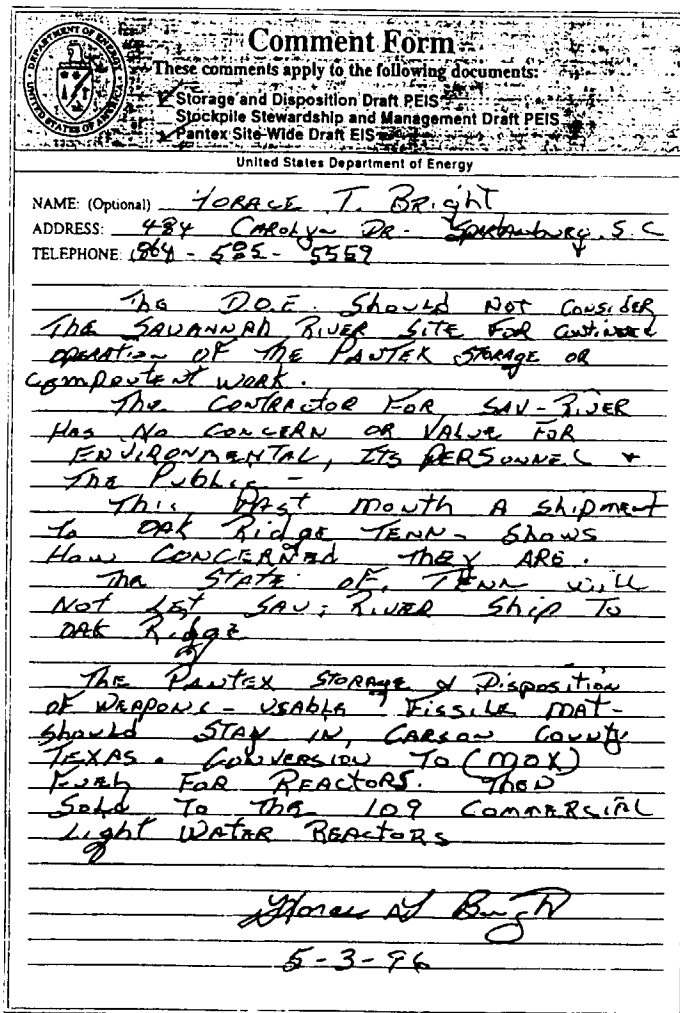 DEPARTMENT OF ENERGY
UNITED STATES OF AMERICA
Comment Form
These comments apply to the following documents:
Storage and Disposition Draft PEIS
Stockpile Stewardship and Management Draft PEIS
Pantex Site-Wide Draft EIS
United States Department of Energy
NAME: (Optional) HORACE T. BRighT
ADDRESS: 484 CAROlyn DR- SPARTANburg, S.C
TELEPHONE: (864-585-5559
The D.O.E. Should NOT CONSIDER
The SAVANNAH RIVER SITE FOR CONTINUED
OPERATION OF THE PANTEX STORAGE OR
COMPONTENT WORK.
The CONTRACTOR FOR SAV-RIVER
HAS NO CONCERN OR VALUE FOR
ENVIRONMENTAL, ITS PERSONNEL &
The Public -
This, PAST MONTH A ShipmENT
To OAK RidgE TENN- Shows
How CONCERNED THEY ARE.
The STATE OF, TENN will
NOT LET SAV; RIVER Ship To
OAK Ridge
The PANTEX STORAGE & DispositioN
OF WEAPONS - USABLE FISSILE MAT-
Should STAY IN, CARSON COUNTY
TEXAS. CONVERSION TO (MOX)
FOR REACTORS. THEN
Sold To The 109 COMMERCIAL
Light WATER REACTORS
Horace T Bright
5-3-96